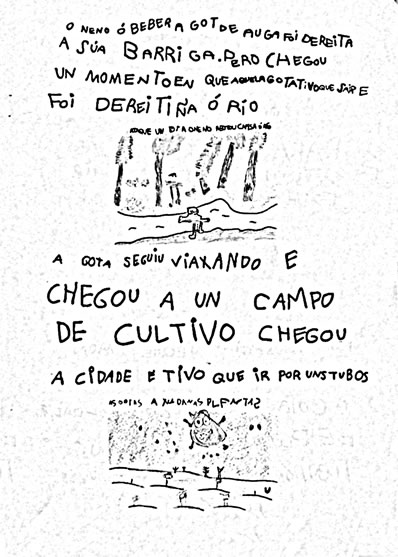 O NENO Ó BEBER A GOT DE AUGA FOI DEREITA
A SÚA BARRIGA. PERO CHEGOU
UN MOMENTO EN QUE AQUELA GOTA TIVO QUE SAIR E
FOI DEREITIÑA Ó RIO
UN DIA O NENO
A GOTA SEGUIU VIAXANDO E
CHEGOU A UN CAMPO
DE CULTIVO CHEGOU
A CIDADE E TIVO QUE IR POR UNS TUBOS
AS GOTAS A PLANTAS